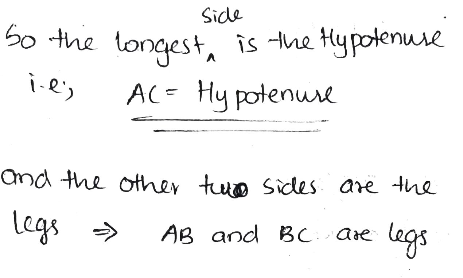 So the longest side is the Hypotenuse
i.e; AC = Hypotenuse
and the other two sides are the
legs ⇒ AB and BC are legs